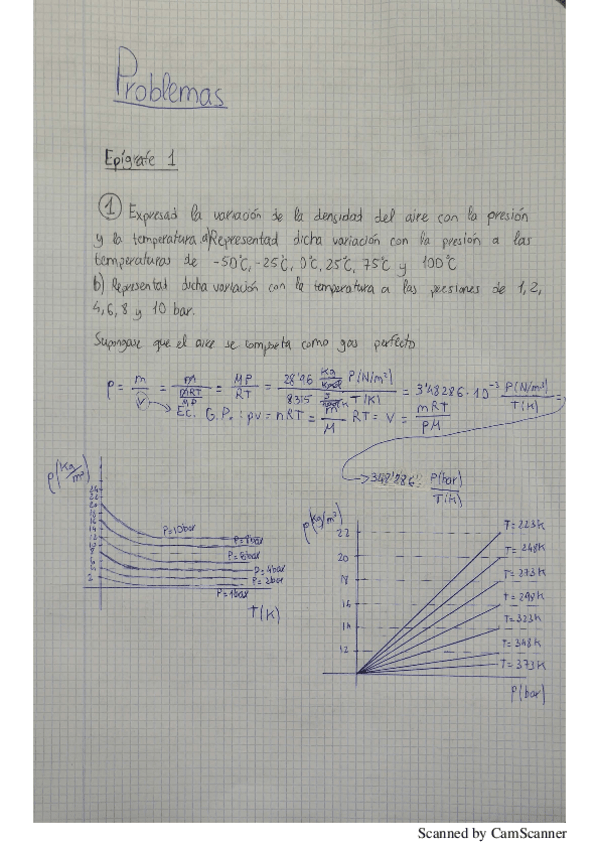 Problemas
Epígrafe 1
① Expresad la variación de la densidad del aire con la presión
y la temperatura a) Representad dicha variación con la presión a las
temperaturas de -50℃, -25℃, 0℃, 25℃, 75℃ y 100℃
b) Representad dicha variación con la temperatura a las presiones de 1, 2,
4, 6, 8 y 10 bar.
Supongase que el aire se comporta como gas perfecto
ρ = m/V = m/(mRT/MP) = MP/RT = 28'96 kg/kmol P(N/m²) / 8315 J/kmol K T(K) = 3'48286·10⁻³ P(N/m²)/T(K) =
Ec. G.P.: pv = nRT = m/M RT = V = mRT/PM
→ 348'286 P(bar)/T(K)
ρ(Kg/m³)
P=10bar
P=8bar
P=6bar
P=4bar
P=2bar
P=1bar
T(K)
ρ(Kg/m³)
22
20
18
16
14
12
T=223K
T=248K
T=273K
T=298K
T=323K
T=348K
T=373K
P(bar)
Scanned by CamScanner